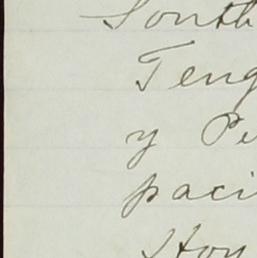 South
Teng
y Pe
paci
Hon